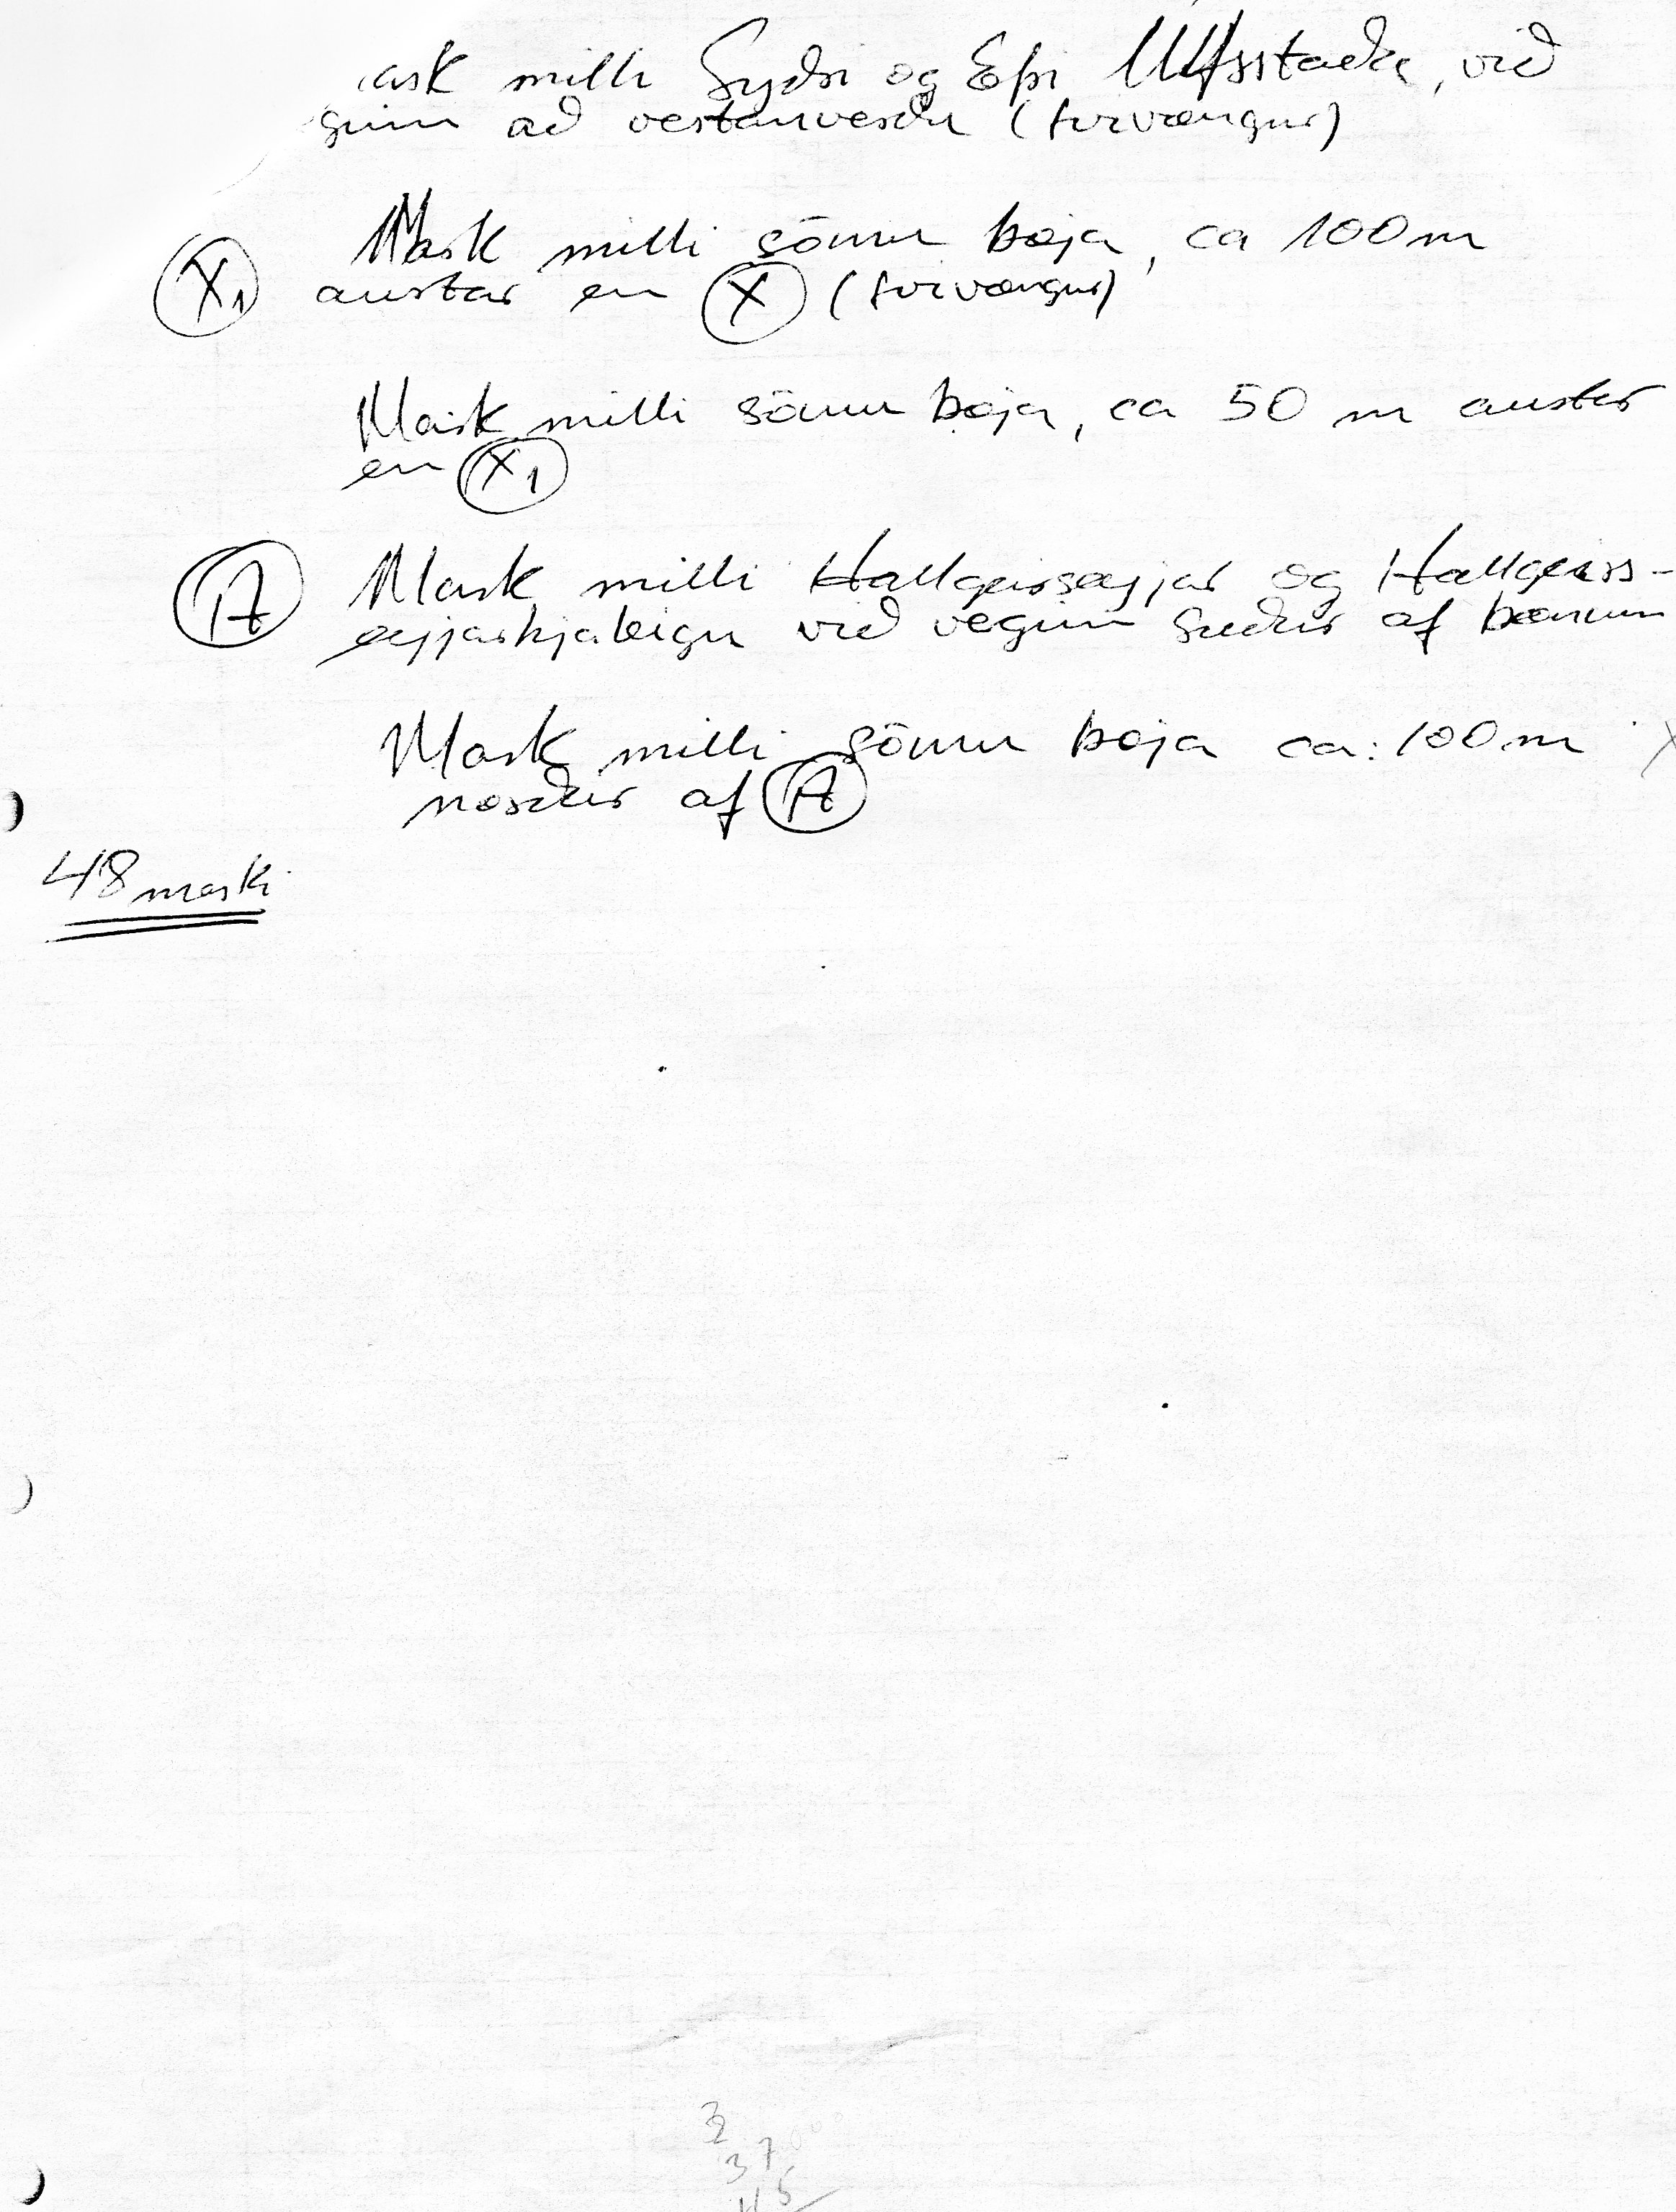 ark milli Syðri og Efri Úlfsstaða, við
ginn að vestanverðu (tvívængur)
Mark milli sömu bæja, ca 100 m
X1 austar en X (tvívængur)
Mark milli sömu bæja, ca 50 m austar
en X1
A Mark milli Hallgeirseyjar og Hallgeirs-
eyjarhjáleigu við veginn suður af bænum
Mark milli sömu bæja ca: 100 m
norður af A
48 merki
32
37
45